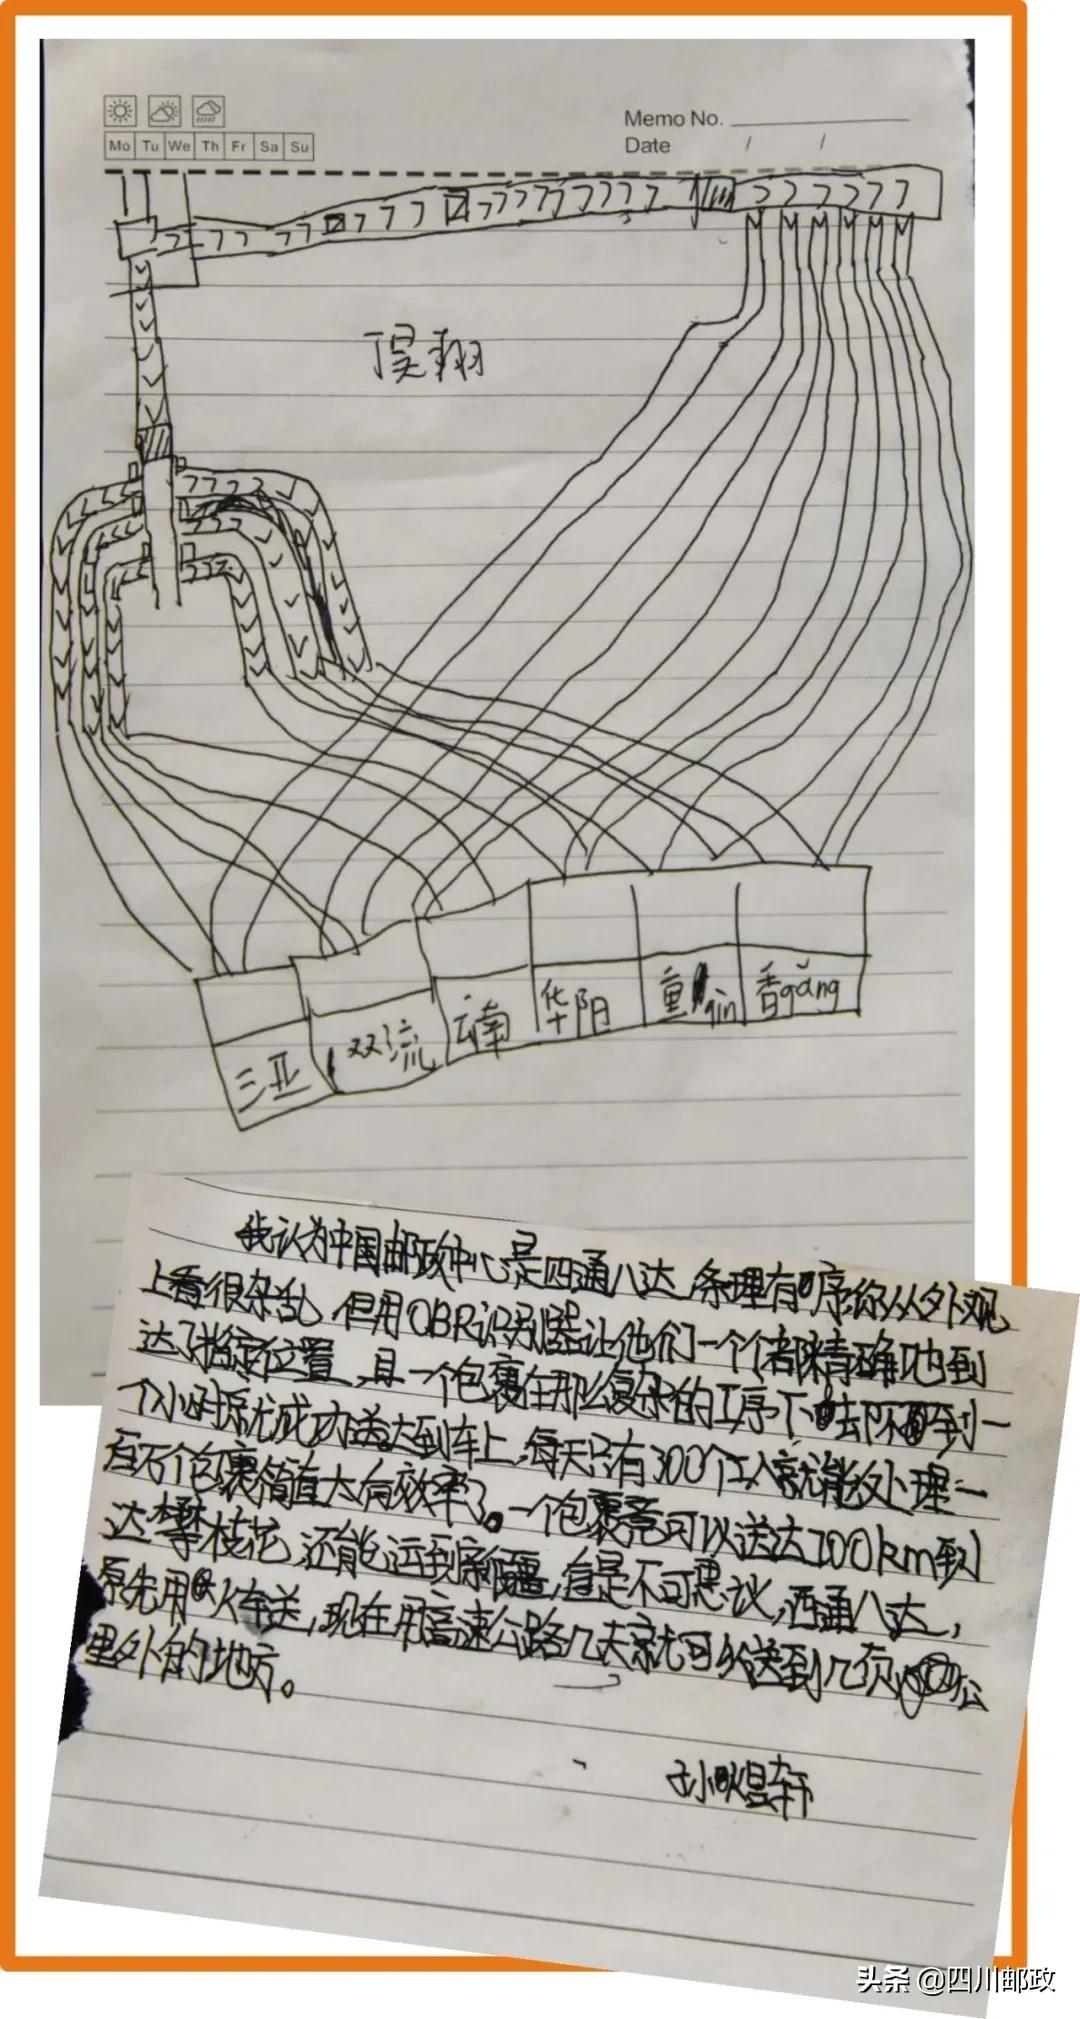 Memo No.
Date / /
Mo Tu We Th Fr Sa Su
丁昊翔
三亚 双流 云南 华阳 重qin 香gǎng
我认为中国邮政中心是四通八达,条理有序你从外观
上看很杂乱,但用OBR识别器让他们一个个都精确地到
达了指定位置,且一个包裹在那么复杂的工序下却不到一
个小时就成功送达到车上,每天只有300个工人就能处理一
百万个包裹简直太有效率了。一个包裹竟可以送达700km到
达攀枝花,还能运到新疆,直是不可思议,四通八达,
原先用火车送,现在用高速公路几天就可以送到几百公
里外的地方。
孙煜轩
头条 @四川邮政